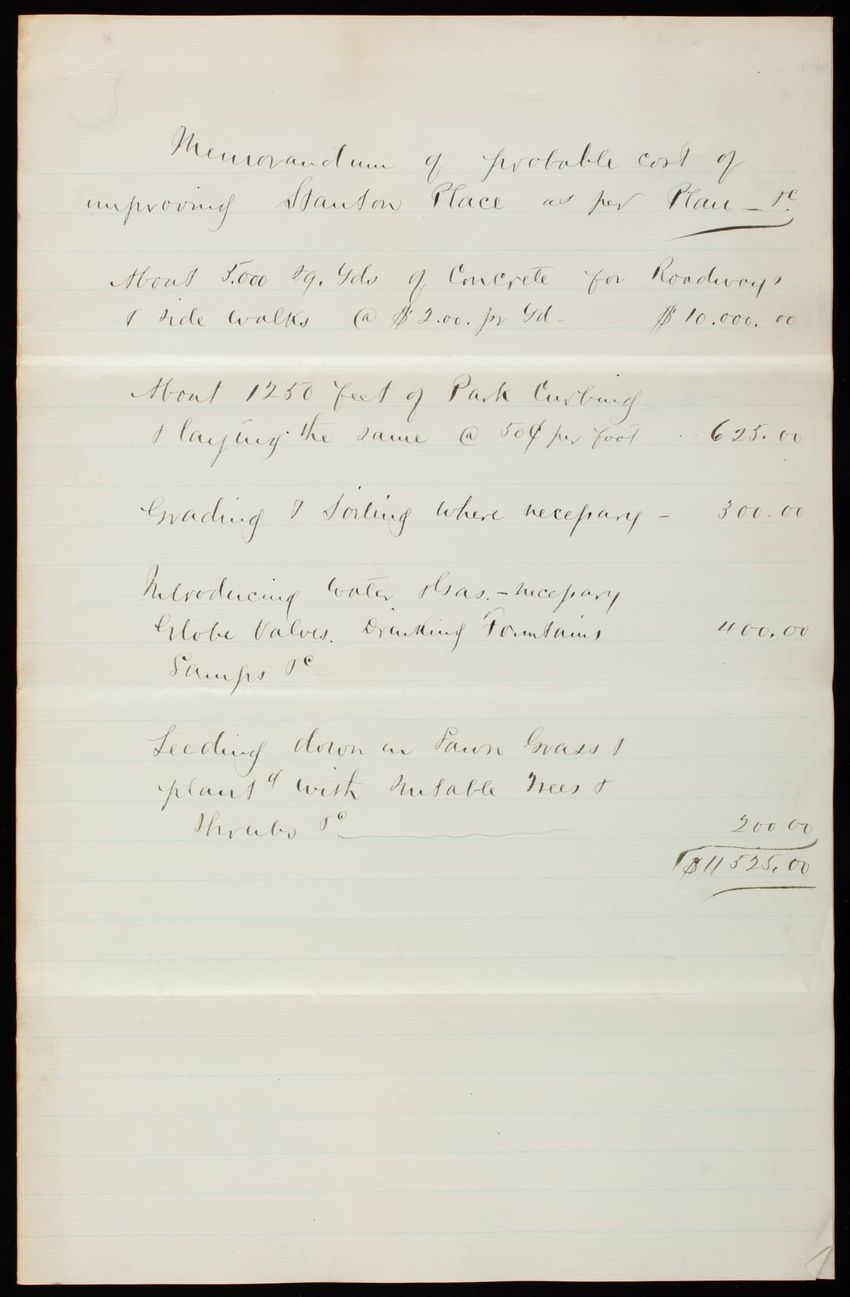 Memorandum of probable cost of
improving Stanton Place as per Plan – &c.
About 5.000 Sq. Yds of Concrete for Roadways
& side walks @ $2.00. pr Yd – $10.000.00
About 1250 feet of Park Curbing
& laying the same @ 50¢ per foot 625.00
Grading & Soiling where necessary – 300.00
Introducing water & Gas. – necessary
Globe Valves. Drinking Fountains 400.00
Lamps &c
Seeding down in Lawn Grass &
plantd with suitable Trees &
Shrubs &c 200 00
$11525.00